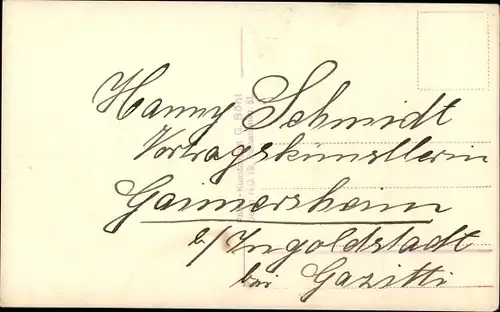 Hanny Schmidt
Vortragskünstlerin
Gaimersheim
b/Ingoldstadt
bei Gazitti